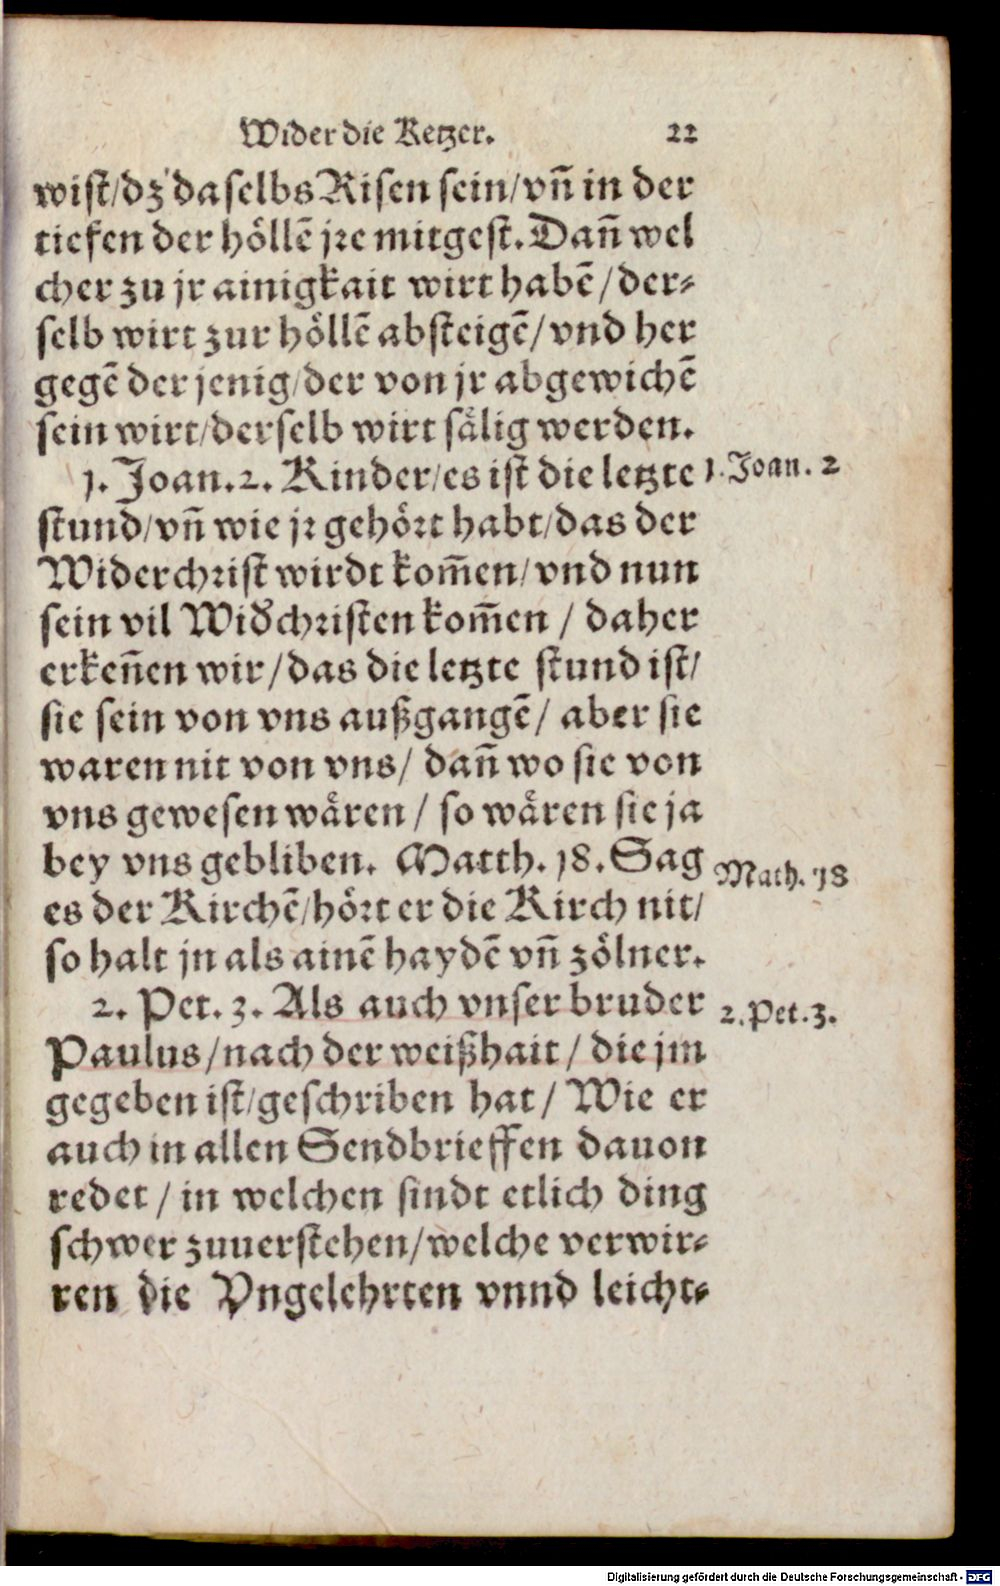 Wider die Ketzer. 22
wist/dz daselbs Risen sein/vñ in der
tiefen der höllẽ jre mitgest. Dañ wel
cher zu jr ainigkait wirt habẽ/der⸗
selb wirt zur höllẽ absteigẽ/vnd her
gegẽ der jenig/der von jr abgewichẽ
sein wirt/derselb wirt sälig werden.
1. Joan. 2. Kinder/es ist die letzte
1. Joan. 2
stund/vñ wie jr gehört habt/das der
Widerchrist wirdt kom̃en/vnd nun
sein vil Widchristen kom̃en / daher
erkeñen wir/das die letzte stund ist/
sie sein von vns außgangẽ/ aber sie
waren nit von vns/ dañ wo sie von
vns gewesen wären / so wären sie ja
bey vns gebliben. Matth. 18. Sag
Math. 18
es der Kirchẽ/hört er die Kirch nit/
so halt jn als ainẽ haydẽ vñ zölner.
2. Pet. 3. Als auch vnser bruder
2. Pet. 3.
Paulus/nach der weißhait / die jm
gegeben ist/geschriben hat / Wie er
auch in allen Sendbrieffen dauon
redet / in welchen sindt etlich ding
schwer zuuerstehen/welche verwir⸗
ren die Vngelehrten vnnd leicht⸗
Digitalisierung gefördert durch die Deutsche Forschungsgemeinschaft - DFG